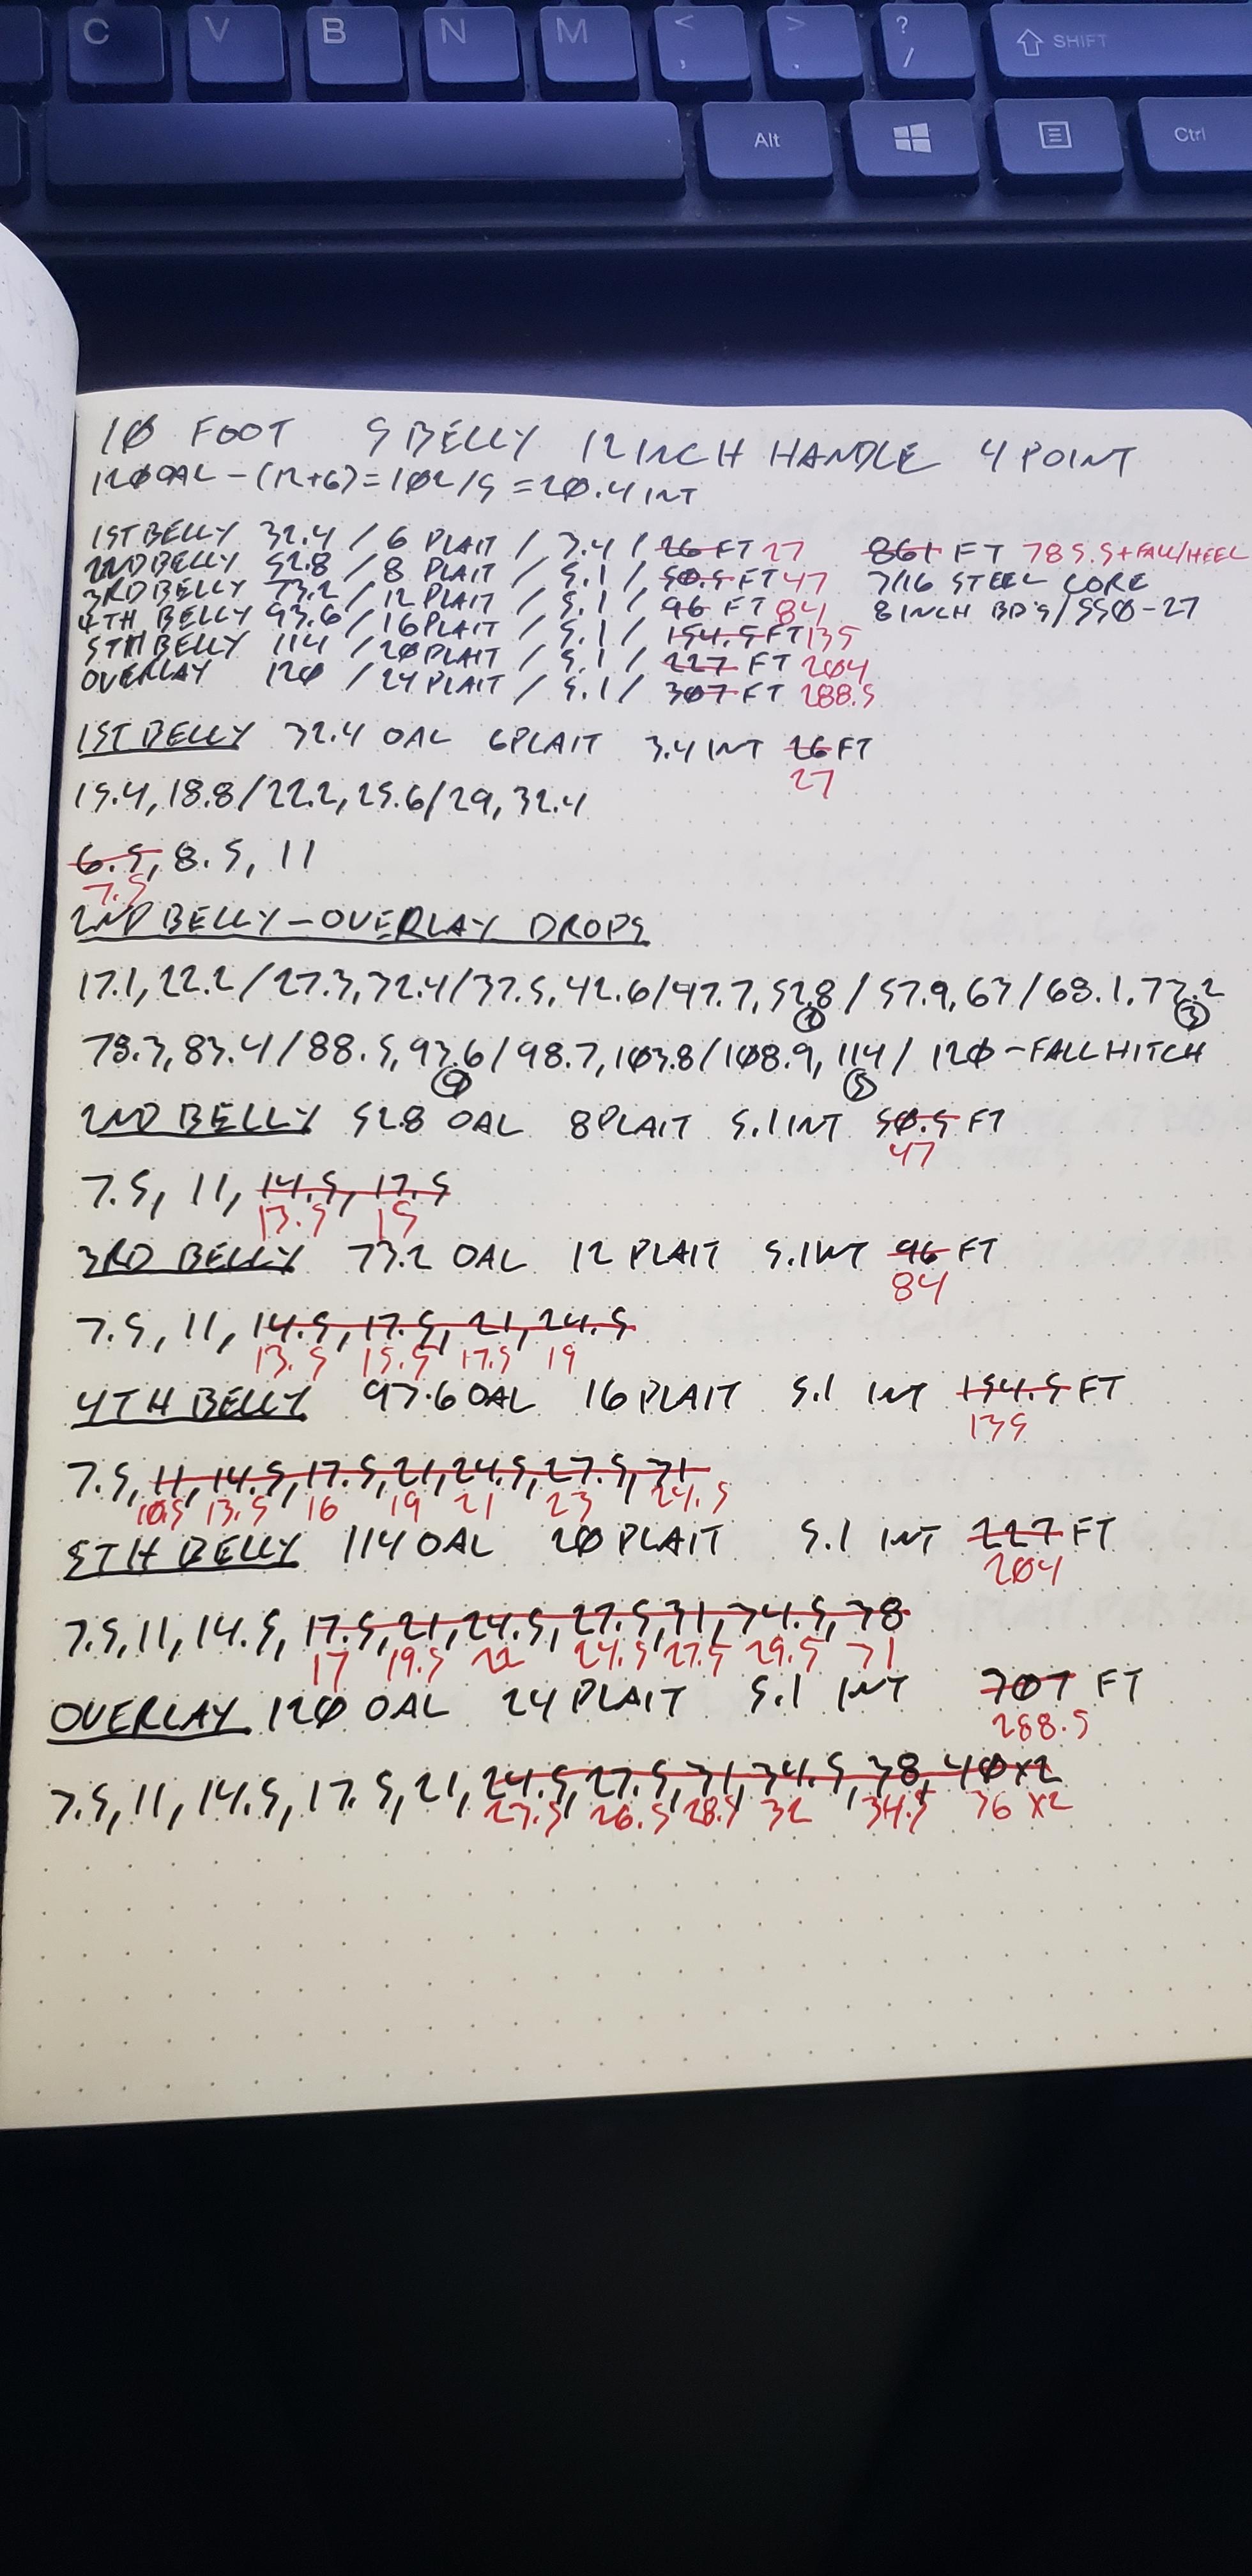 C V B N M < , > . ? / SHIFT
Alt Ctrl
10 FOOT 5 BELLY 12 INCH HANDLE 4 POINT
120 OAL - (12+6) = 102/5 = 20.4 INT
1ST BELLY 32.4 / 6 PLAIT / 3.4 / 26 FT 27 861 FT 785.5 + FALL/HEEL
2ND BELLY 52.8 / 8 PLAIT / 5.1 / 50.5 FT 47 7/16 STEEL CORE
3RD BELLY 73.2 / 12 PLAIT / 5.1 / 96 FT 84 8 INCH BD'S/550-27
4TH BELLY 93.6 / 16 PLAIT / 5.1 / 154.5 FT 135
5TH BELLY 114 / 20 PLAIT / 5.1 / 227 FT 204
OVERLAY 120 / 24 PLAIT / 5.1 / 307 FT 288.5
1ST BELLY 32.4 OAL 6 PLAIT 3.4 INT 26 FT
27
15.4, 18.8/22.2, 25.6/29, 32.4
6.5, 8.5, 11
7.5
2ND BELLY - OVERLAY DROPS
17.1, 22.2/27.3, 32.4/37.5, 42.6/47.7, 52.8/57.9, 63/68.1, 73.2
2 3
78.3, 83.4/88.5, 93.6/98.7, 103.8/108.9, 114/ 120 - FALL HITCH
4 5
2ND BELLY 52.8 OAL 8 PLAIT 5.1 INT 50.5 FT
47
7.5, 11, 14.5, 17.5
13.5 15
3RD BELLY 73.2 OAL 12 PLAIT 5.1 INT 96 FT
84
7.5, 11, 14.5, 17.5, 21, 24.5
13.5 15.5 17.5 19
4TH BELLY 93.6 OAL 16 PLAIT 5.1 INT 154.5 FT
135
7.5, 11, 14.5, 17.5, 21, 24.5, 27.5, 31
10.5 13.5 16 19 21 23 24.5
5TH BELLY 114 OAL 20 PLAIT 5.1 INT 227 FT
204
7.5, 11, 14.5, 17.5, 21, 24.5, 27.5, 31, 34.5, 38
17 19.5 22 24.5 27.5 29.5 31
OVERLAY 120 OAL 24 PLAIT 5.1 INT 307 FT
288.5
7.5, 11, 14.5, 17.5, 21, 24.5, 27.5, 31, 34.5, 38, 40 x2
23.5 26.5 28.5 32 34.5 36 x2